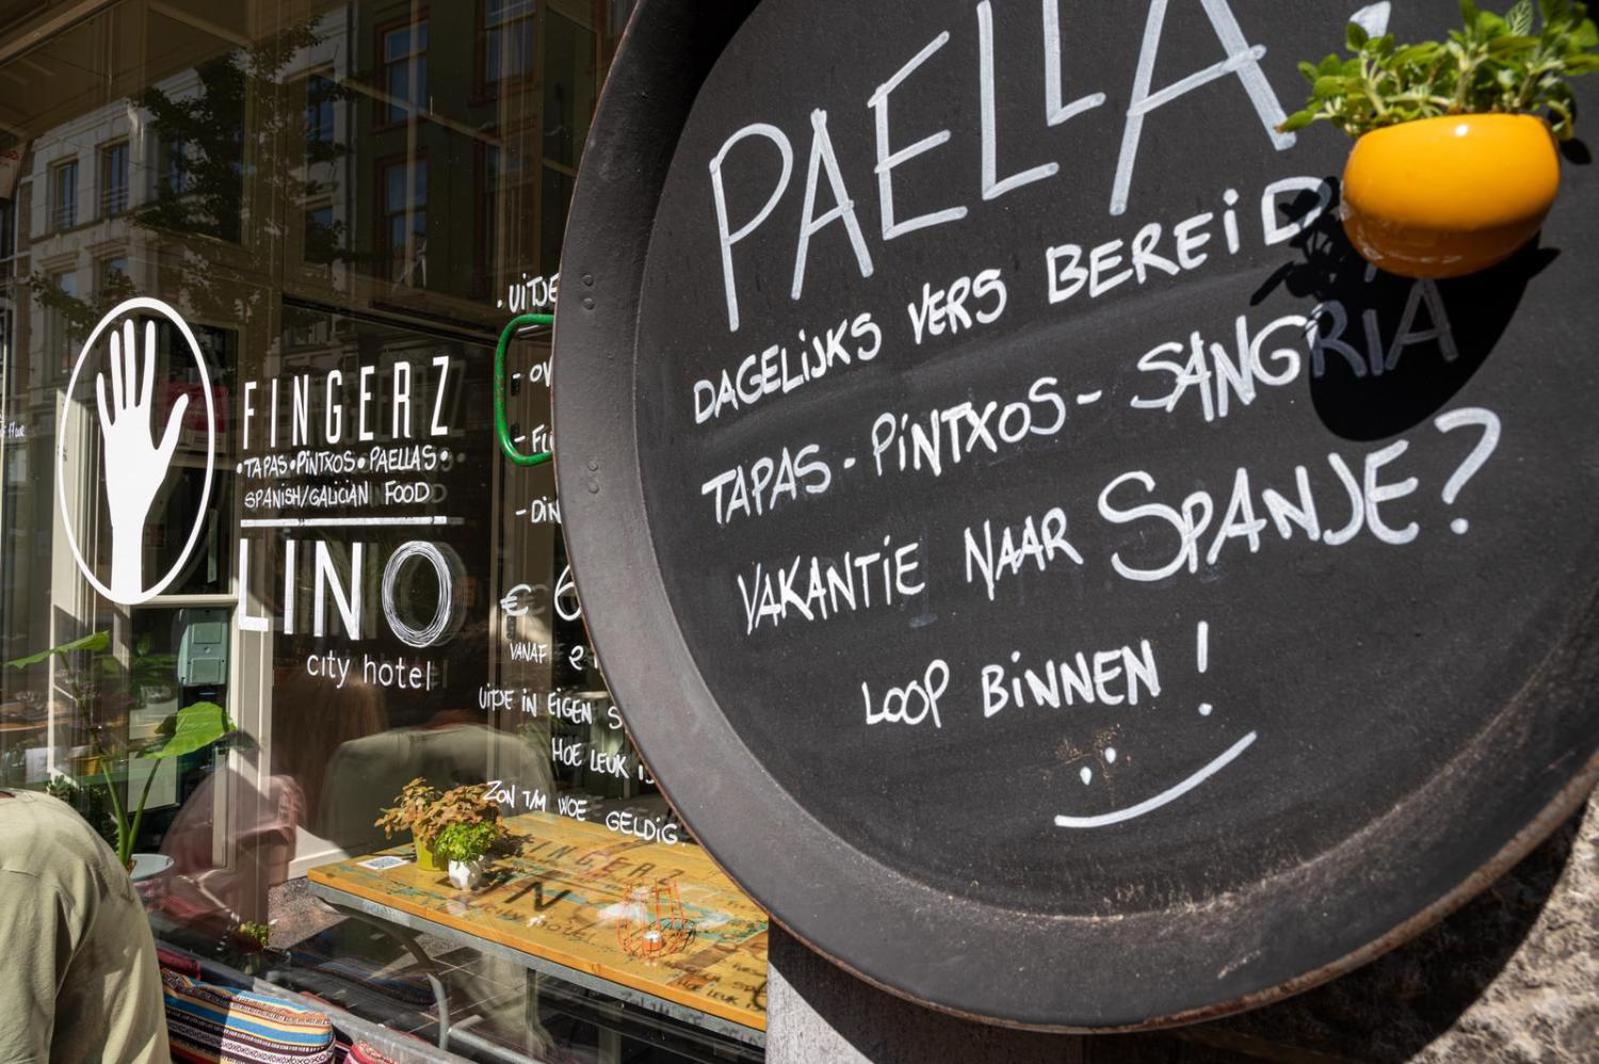 PAELLA!
DAGELIJKS VERS BEREID
TAPAS - PINTXOS - SANGRIA
VAKANTIE NAAR SPANJE?
LOOP BINNEN!
FINGERZ
•TAPAS•PINTXOS•PAELLAS•
SPANISH/GALICIAN FOOD
LINO
city hotel
€ 6
VANAF
UITJE IN EIGEN
HOE LEUK
ZON T/M WOE GELDIG.